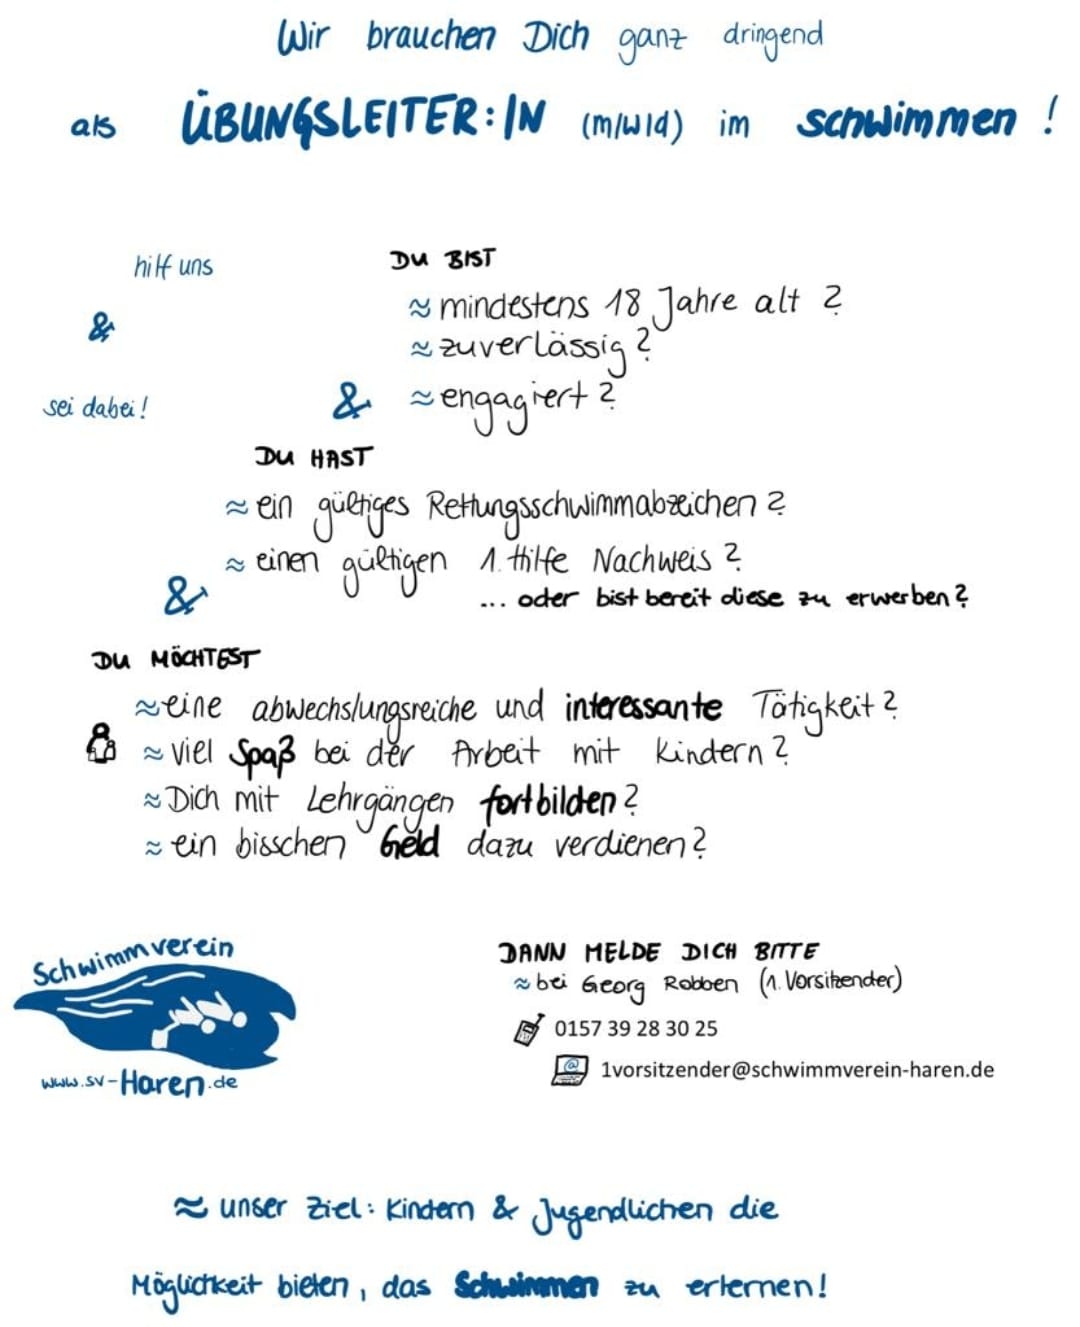 Wir brauchen Dich ganz dringend
als ÜBUNGSLEITER:IN (m/w/d) im schwimmen!
hilf uns
&
sei dabei!
DU BIST
≈ mindestens 18 Jahre alt?
≈ zuverlässig?
& ≈ engagiert?
DU HAST
≈ ein gültiges Rettungsschwimmabzeichen?
≈ einen gültigen 1. Hilfe Nachweis?
& ... oder bist bereit diese zu erwerben?
DU MÖCHTEST
≈ eine abwechslungsreiche und interessante Tätigkeit?
≈ viel Spaß bei der Arbeit mit Kindern?
≈ Dich mit Lehrgängen fortbilden?
≈ ein bisschen Geld dazu verdienen?
Schwimmverein
www.sv-Haren.de
DANN MELDE DICH BITTE
≈ bei Georg Robben (1. Vorsitzender)
0157 39 28 30 25
@ 1vorsitzender@schwimmverein-haren.de
≈ unser Ziel: Kindern & Jugendlichen die
Möglichkeit bieten, das Schwimmen zu erlernen!